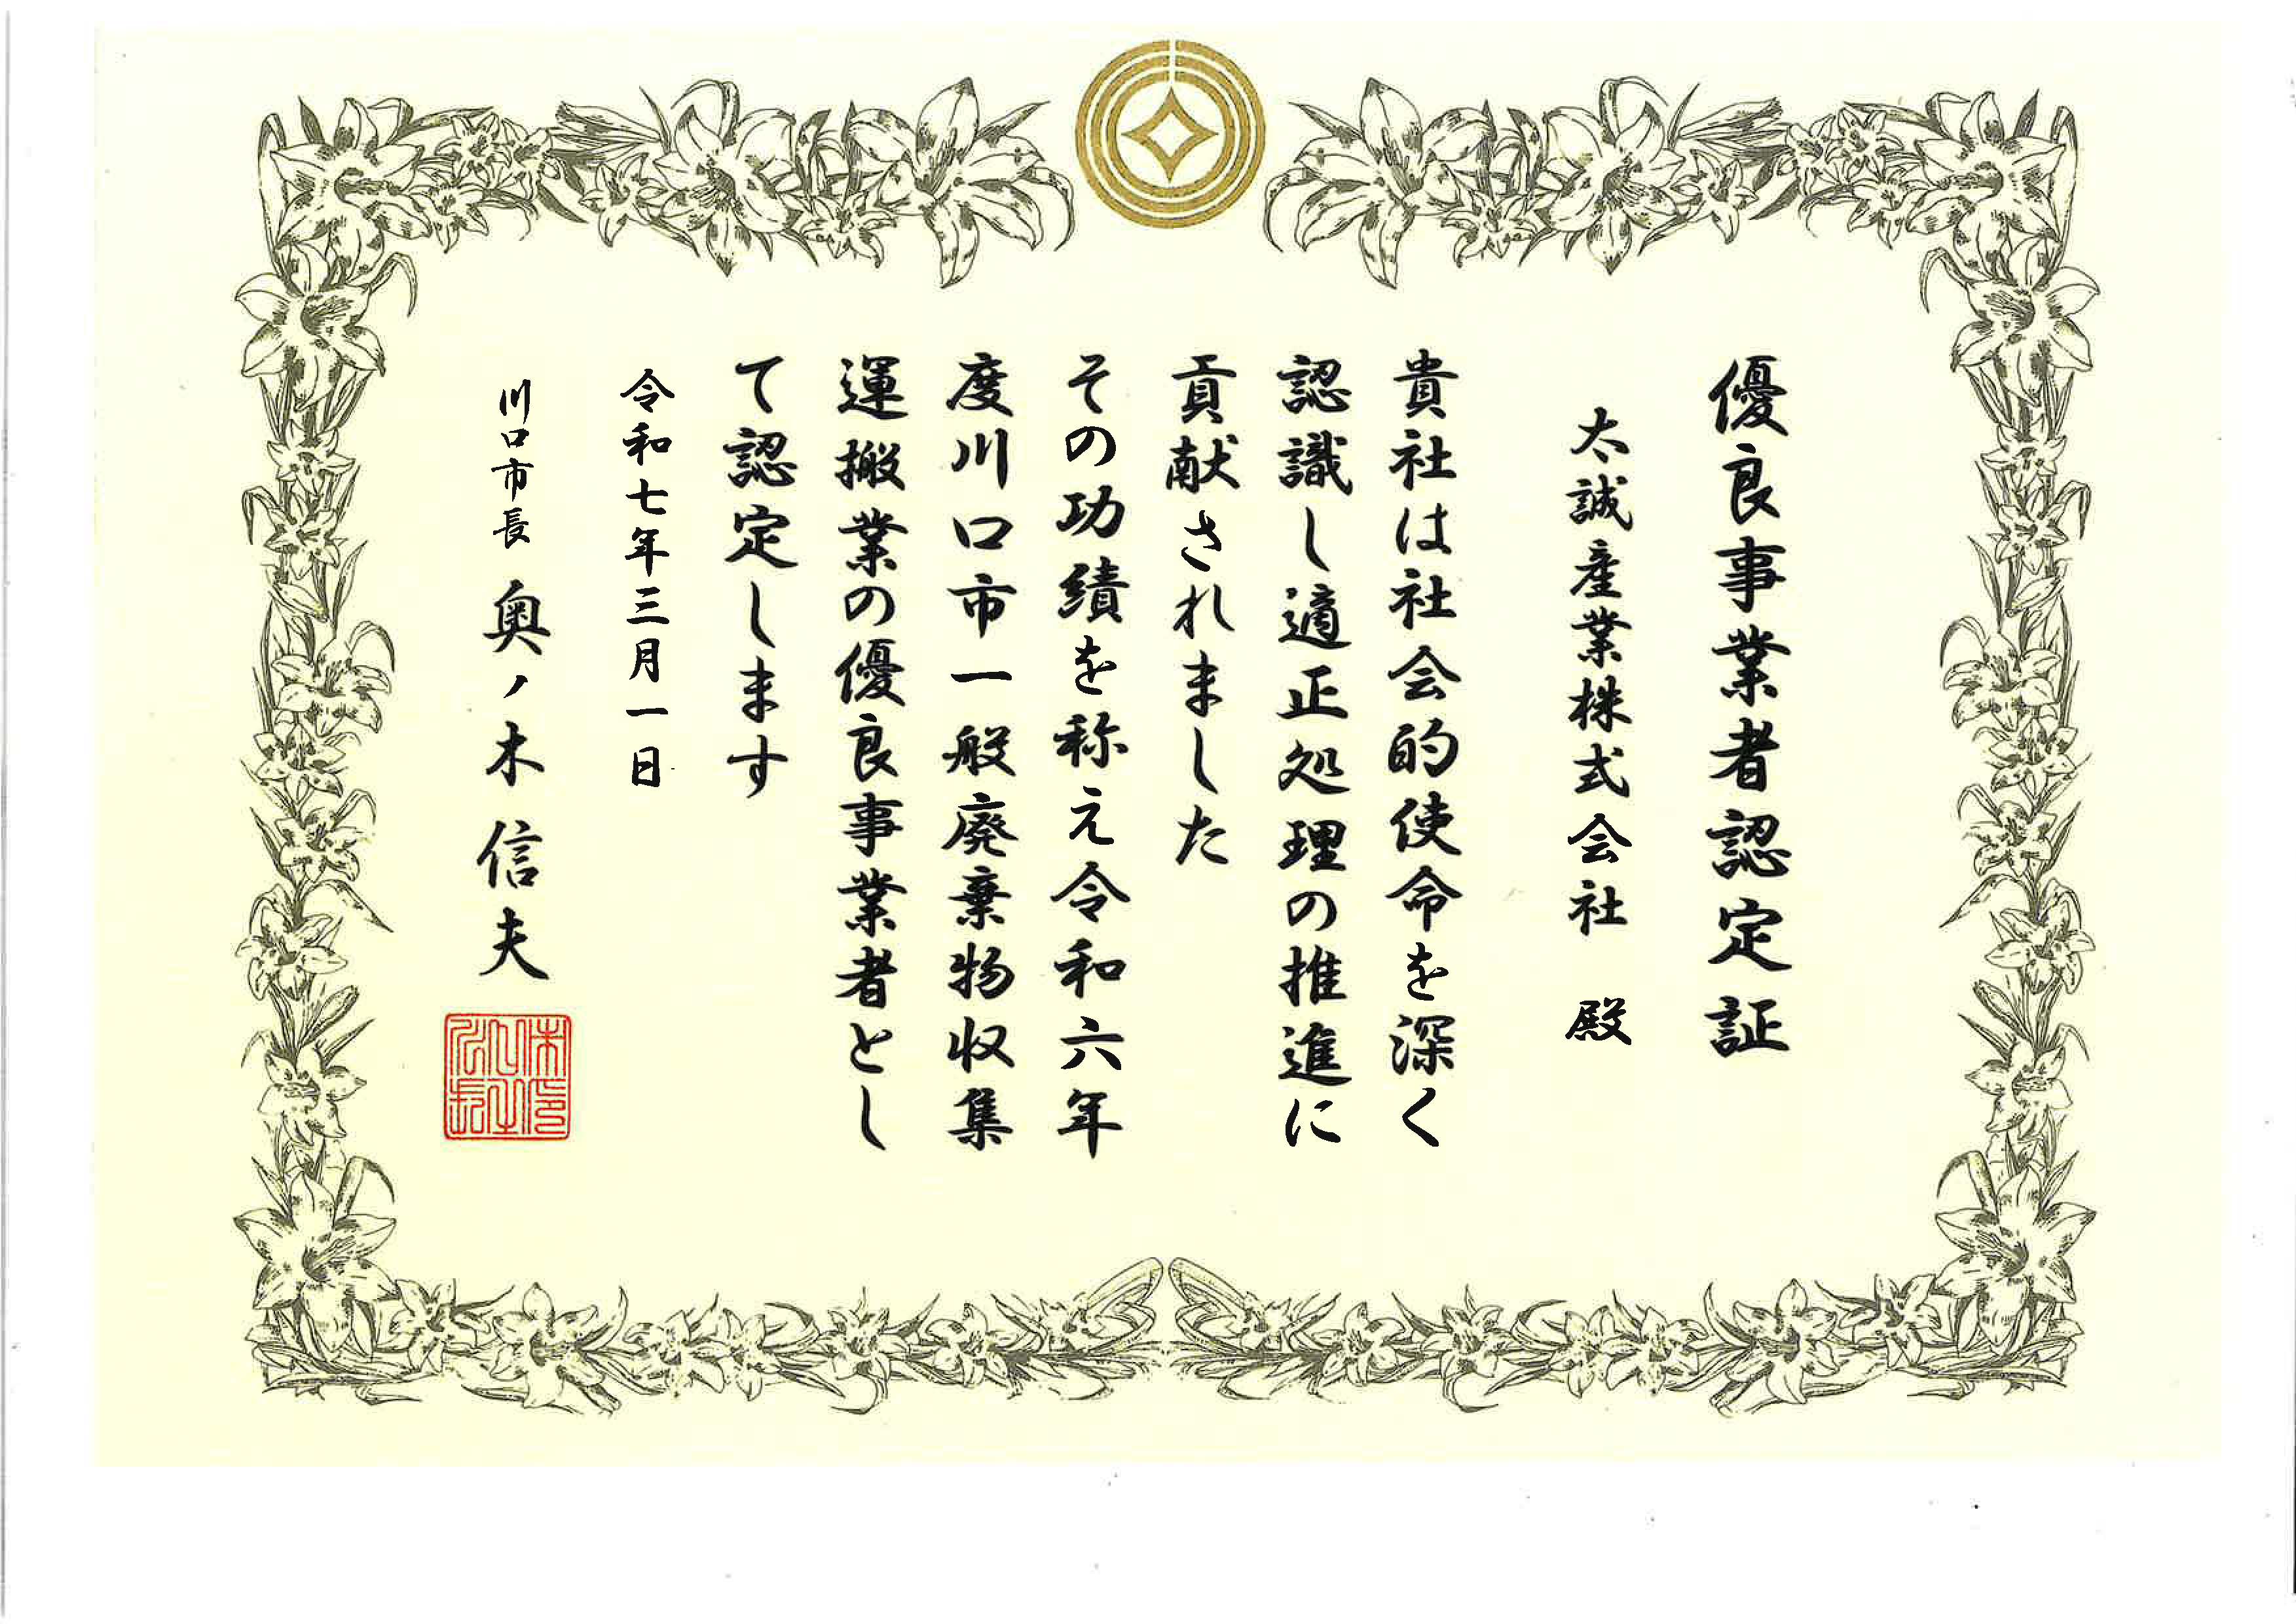 優良事業者認定証
太誠産業株式会社 殿
貴社は社会的使命を深く
認識し適正処理の推進に
貢献されました
その功績を称え令和六年
度川口市一般廃棄物収集
運搬業の優良事業者とし
て認定します
令和七年三月一日
川口市長 奥ノ木信夫